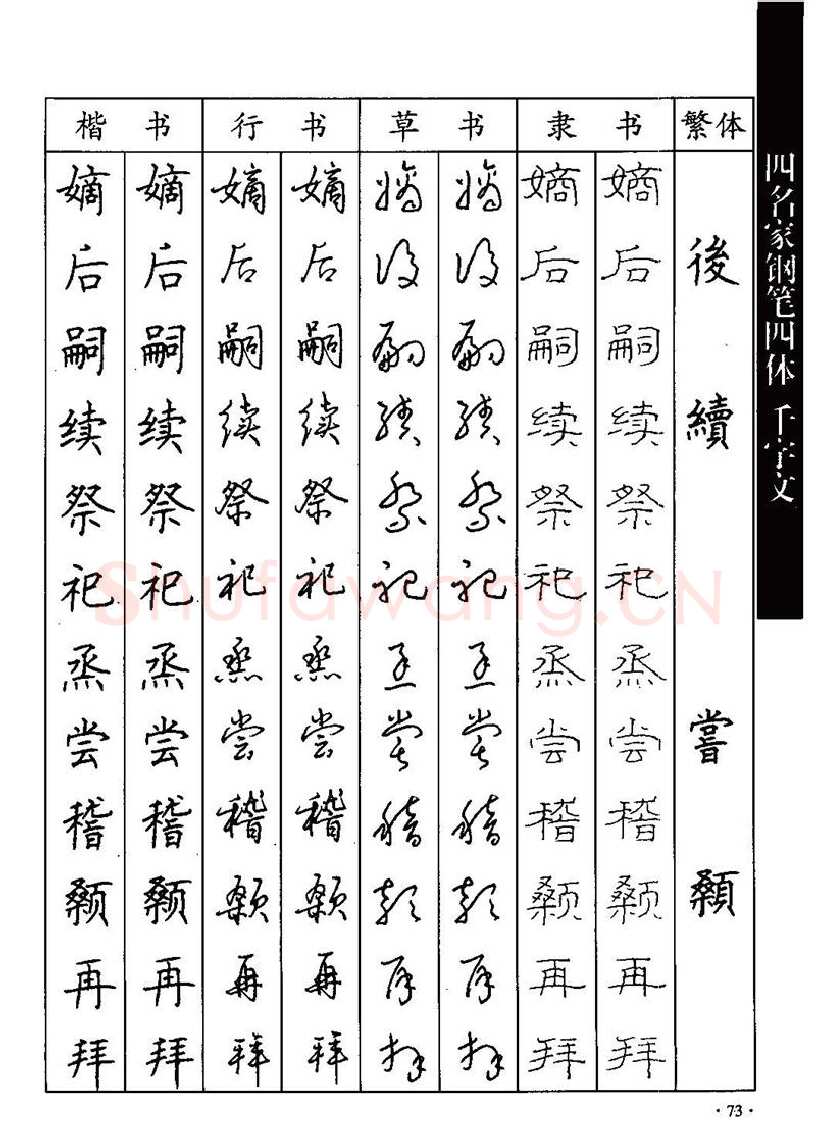 楷书 行书 草书 隶书 繁体
嫡 嫡 嫡 嫡 嫡 嫡 嫡 嫡
后 后 后 后 后 后 后 后 後
嗣 嗣 嗣 嗣 嗣 嗣 嗣 嗣
续 续 续 续 续 续 续 续 續
祭 祭 祭 祭 祭 祭 祭 祭
祀 祀 祀 祀 祀 祀 祀 祀
Shufawang.CN
烝 烝 烝 烝 烝 烝 烝 烝
尝 尝 尝 尝 尝 尝 尝 尝 嘗
稽 稽 稽 稽 稽 稽 稽 稽
颡 颡 颡 颡 颡 颡 颡 颡 顙
再 再 再 再 再 再 再 再
拜 拜 拜 拜 拜 拜 拜 拜
四名家钢笔四体 千字文
·73·